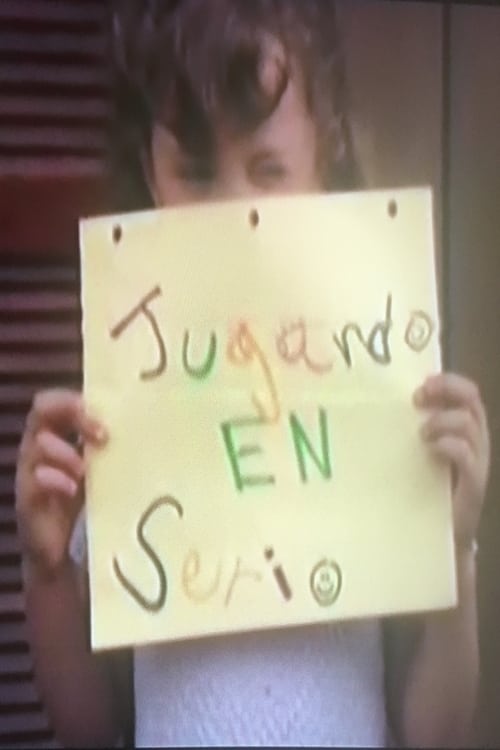 Jugando
EN
Serio